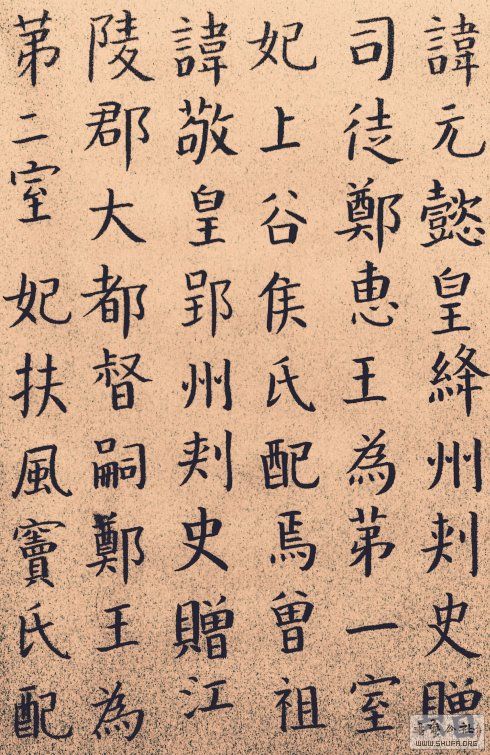 諱元懿皇絳州刾史贈
司徒鄭惠王為苐一室
妃上谷侯氏配焉曾祖
諱敬皇郢州刾史贈江
陵郡大都督嗣鄭王為
苐二室妃扶風竇氏配
WWW.SHUFA.ORG